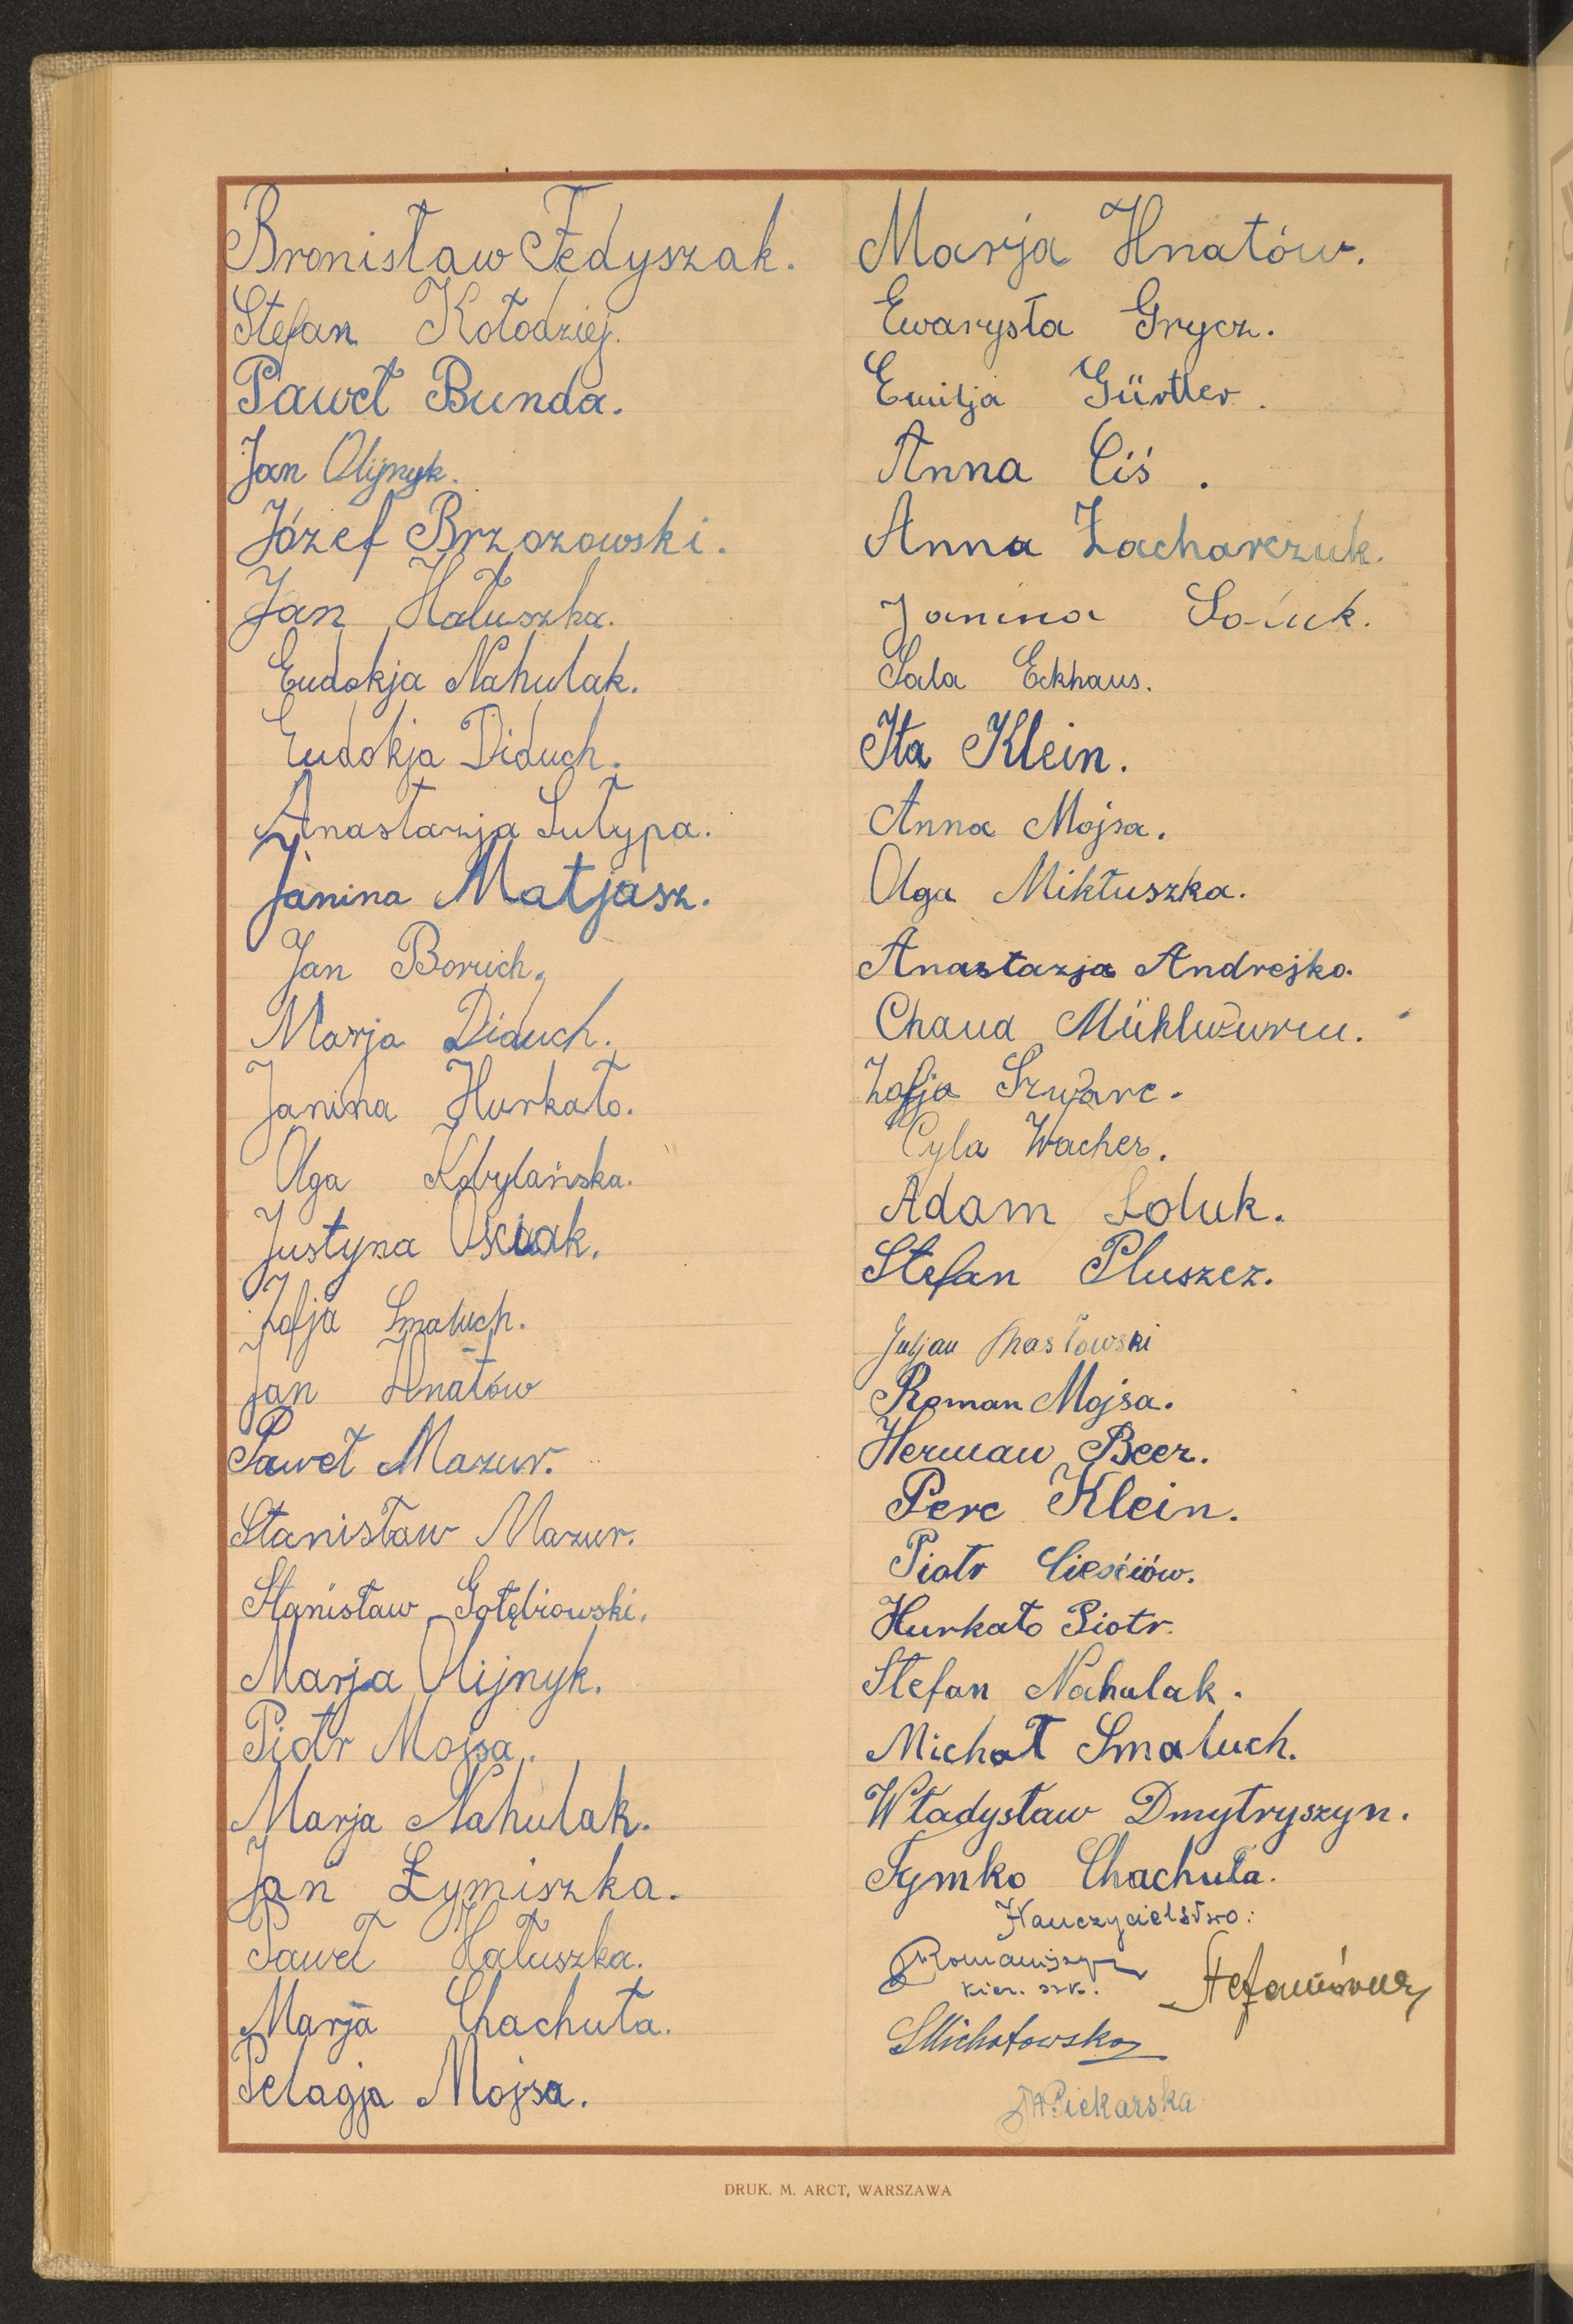 Bronisław Fedyszak.
Stefan Kołodziej.
Paweł Bunda.
Jan Olijnyk.
Józef Brzozowski.
Jan Hałuszka.
Eudokja Nahulak.
Eudokja Diduch.
Anastazja Sutypa.
Janina Matjasz.
Jan Boruch.
Marja Diduch.
Janina Hurkało.
Olga Kobylańska.
Justyna
Zofja Smaluch.
Jan Hnatów
Paweł Mazur.
Stanisław Mazur.
Stanisław Gołębiowski.
Marja Olijnyk.
Piotr Mojsa.
Marja Nahulak.
Jan Żymiszka.
Paweł Hałuszka.
Marja Chachuła.
Pelagja Mojsa.
Marja Hnatów.
Ewarysta Grycz.
Emilja Gürtler.
Anna Ciś.
Anna Zacharczuk.
Janina
Sala Eckhaus.
Ita Klein.
Anna Mojsa.
Olga Mikłuszka.
Anastazja Andrejko.
Chana Mühlwurm.
Zofja Szwarc.
Cyla Wacher.
Adam Soluk.
Stefan Pluszcz.
Juljan Masłowski
Roman Mojsa.
Herman Beer.
Perc Klein.
Piotr Cieściów.
Hurkało Piotr.
Stefan Nahulak.
Michał Smaluch.
Władysław Dmytryszyn.
Tymko Chachuła.
Nauczycielstwo:
kier. szk.
Stefanówna
SMichałowska
Piekarska
DRUK. M. ARCT, WARSZAWA